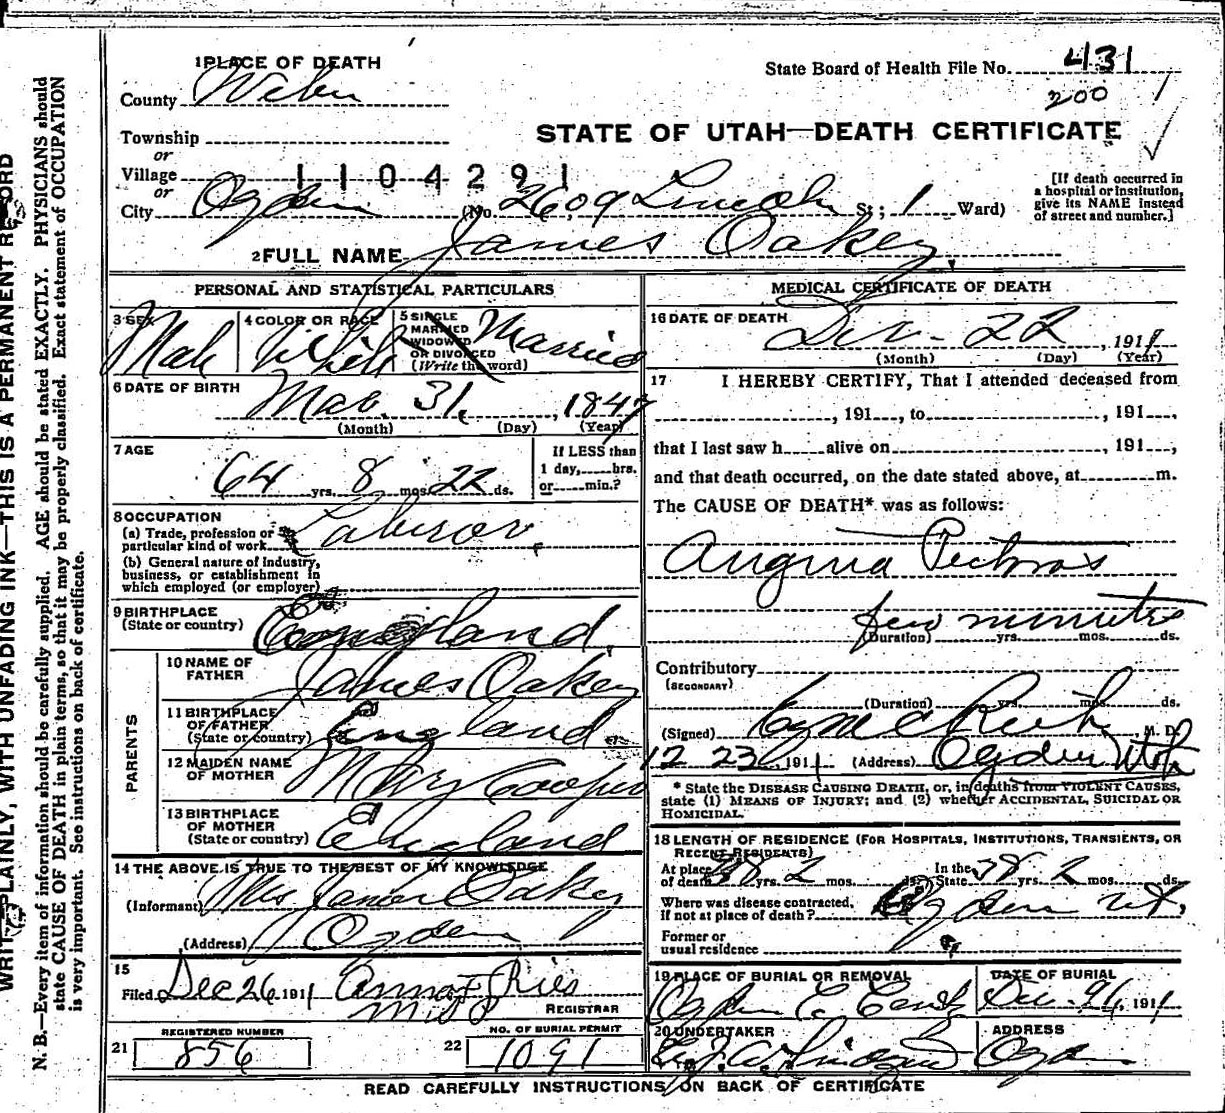 WRITE PLAINLY, WITH UNFADING INK—THIS IS A PERMANENT RECORD
N. B.—Every item of information should be carefully supplied. AGE should be stated EXACTLY. PHYSICIANS should
state CAUSE OF DEATH in plain terms, so that it may be properly classified. Exact statement of OCCUPATION
is very important. See instructions on back of certificate.
1 PLACE OF DEATH
County Weber
State Board of Health File No. 431
200
Township
or
Village
or
1104291
STATE OF UTAH—DEATH CERTIFICATE
City Ogden (No. 2609 Lincoln St; 1 Ward)
[If death occurred in
a hospital or institution,
give its NAME instead
of street and number.]
2 FULL NAME James Oakey
PERSONAL AND STATISTICAL PARTICULARS
3 SEX Male
4 COLOR OR RACE White
5 SINGLE
MARRIED
WIDOWED
OR DIVORCED
(Write the word) Married
6 DATE OF BIRTH
Mar. 31, 1847
(Month) (Day) (Year)
7 AGE
64 yrs. 8 mos. 22 ds.
If LESS than
1 day, hrs.
or min.?
8 OCCUPATION
(a) Trade, profession or
particular kind of work Laborer
(b) General nature of industry,
business, or establishment in
which employed (or employer)
9 BIRTHPLACE
(State or country) England
PARENTS
10 NAME OF
FATHER James Oakey
11 BIRTHPLACE
OF FATHER
(State or country) England
12 MAIDEN NAME
OF MOTHER Mary Cooper
13 BIRTHPLACE
OF MOTHER
(State or country) England
14 THE ABOVE IS TRUE TO THE BEST OF MY KNOWLEDGE
(Informant) Mrs James Oakey
(Address) Ogden
15
Filed Dec 26 1911 Anna F Ries
REGISTRAR
21 REGISTERED NUMBER
856
22 NO. OF BURIAL PERMIT
1091
MEDICAL CERTIFICATE OF DEATH
16 DATE OF DEATH
22, 1911
(Month) (Day) (Year)
17 I HEREBY CERTIFY, That I attended deceased from
, 191 , to , 191 ,
that I last saw h alive on , 191 ,
and that death occurred, on the date stated above, at m.
The CAUSE OF DEATH* was as follows:
Angina Pectoris
few minutes
(Duration) yrs. mos. ds.
Contributory
(SECONDARY)
(Duration) yrs. mos. ds.
(Signed) M. D.
12 23 1911 (Address) Ogden Utah
* State the DISEASE CAUSING DEATH, or, in deaths from VIOLENT CAUSES,
state (1) MEANS OF INJURY; and (2) whether ACCIDENTAL, SUICIDAL OR
HOMICIDAL.
18 LENGTH OF RESIDENCE (FOR HOSPITALS, INSTITUTIONS, TRANSIENTS, OR
RECENT RESIDENTS)
At place
of death 38 yrs. 2 mos. ds. In the
State 38 yrs. 2 mos. ds.
Where was disease contracted,
if not at place of death? Ogden Ut.
Former or
usual residence
19 PLACE OF BURIAL OR REMOVAL
Ogden
DATE OF BURIAL
Dec. 1911
20 UNDERTAKER
ADDRESS
Ogden
READ CAREFULLY INSTRUCTIONS ON BACK OF CERTIFICATE